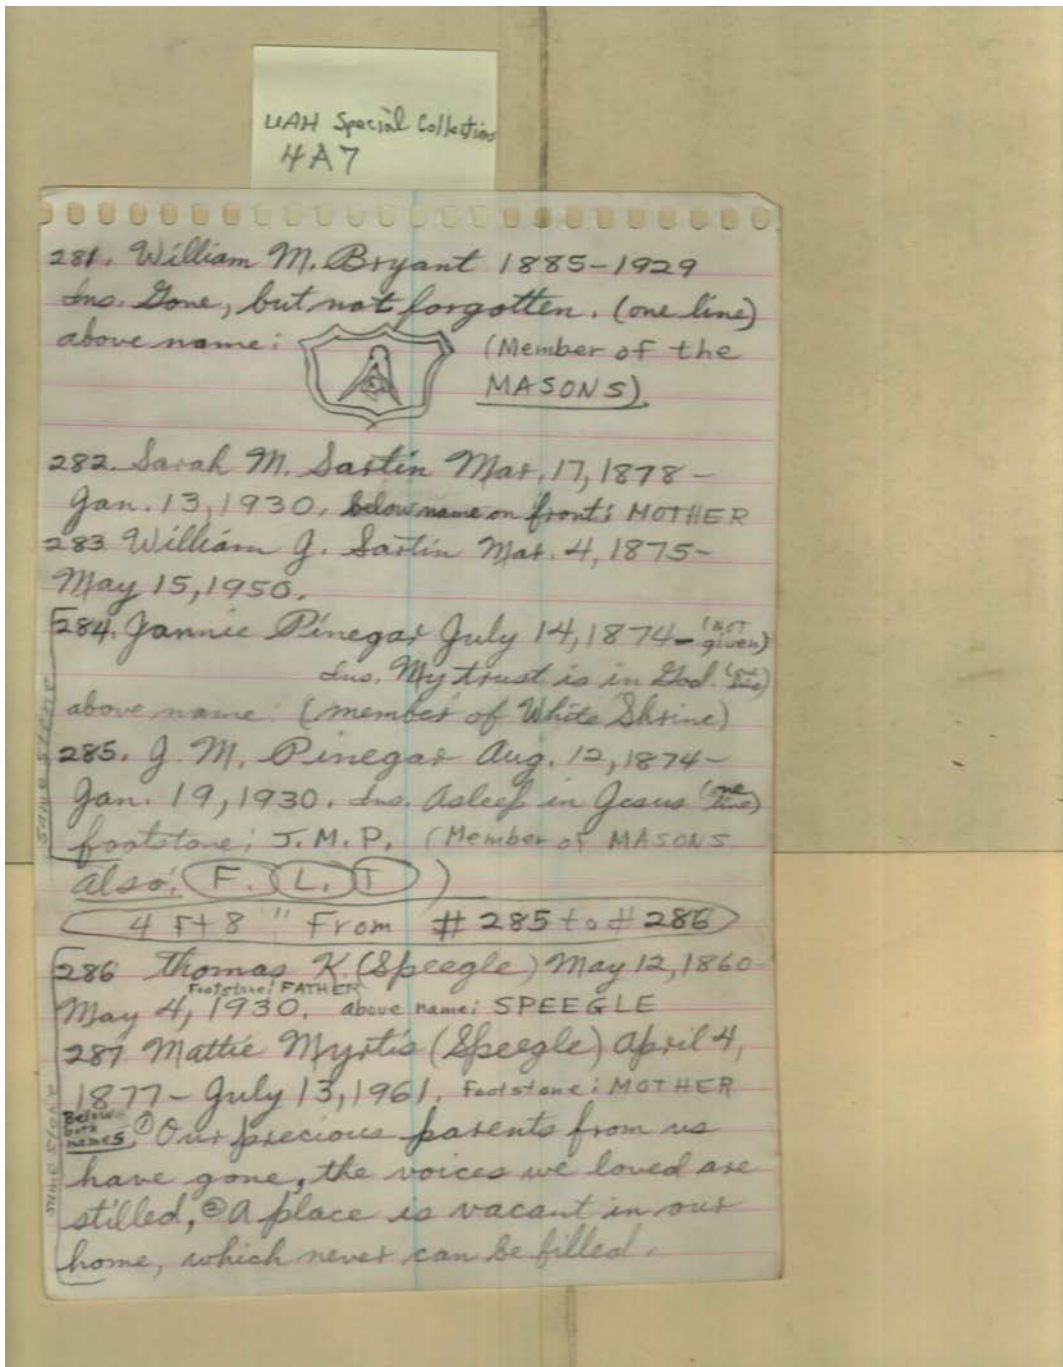 UAH Special Collections
4A7
281. William M. Bryant 1885-1929
Ins. Gone, but not forgotten. (one line)
above name: (Member of the
MASONS)
282. Sarah M. Sartin Mar. 17, 1878-
Jan. 13, 1930. below name on front: MOTHER
283 William J. Sartin Mar. 4, 1875-
May 15, 1950.
284. Jannie Pinegar July 14, 1874- (NOT given)
Ins. My trust is in God. (one line)
above name: (member of White Shrine)
285. J. M. Pinegar Aug. 12, 1874-
Jan. 19, 1930. Ins. Asleep in Jesus (one line)
footstone: J.M.P. (Member of MASONS
same stone
also: F. L. T )
4 ft 8 " From # 285 to # 286
286 Thomas K. (Speegle) May 12, 1860-
Footstone: FATHER
May 4, 1930. above name: SPEEGLE
287 Mattie Myrtis (Speegle) April 4,
1877- July 13, 1961. Footstone: MOTHER
Below both names: ① Our precious parents from us
have gone, the voices we loved are
stilled, ② A place is vacant in our
home, which never can be filled.
same stone